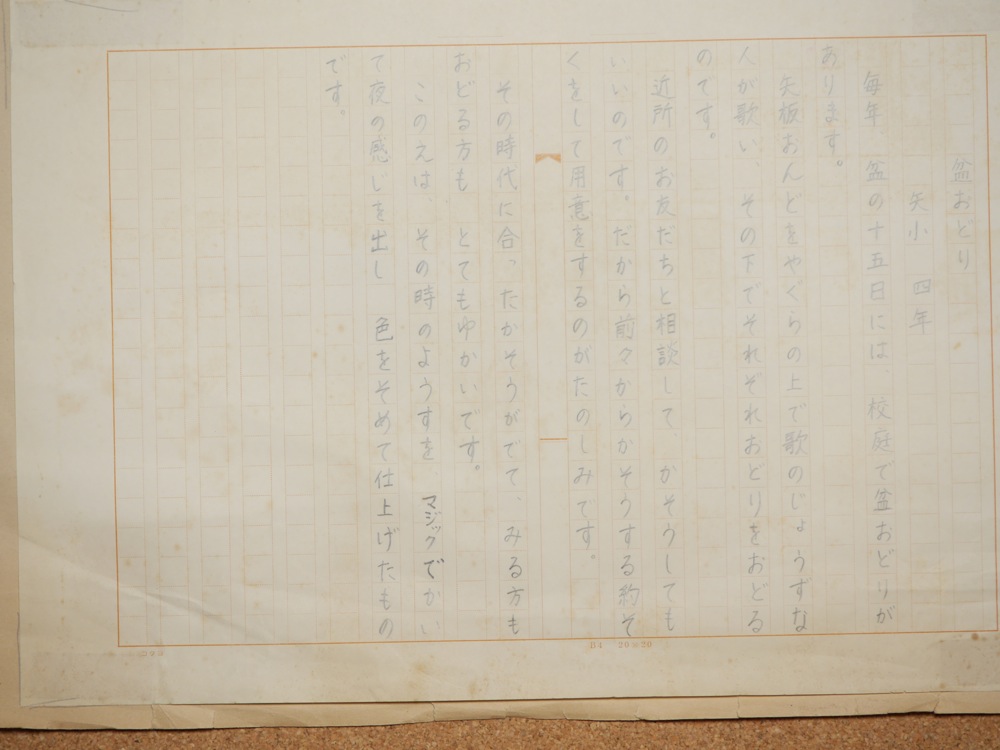 盆おどり
矢小 四年
毎年 盆の十五日には、校庭で盆おどりが
あります。
矢板おんどをやぐらの上で歌のじょうずな
人が歌い、その下でそれぞれおどりをおどる
のです。
近所のお友だちと相談して、かそうしても
いいのです。だから前々からかそうする約そ
くをして用意をするのがたのしみです。
その時代に合ったかそうがでて、みる方も
おどる方も とてもゆかいです。
このえは、その時のようすを マジックでかい
て夜の感じを出し 色をそめて仕上げたもの
です。
コクヨ
B4 20×20